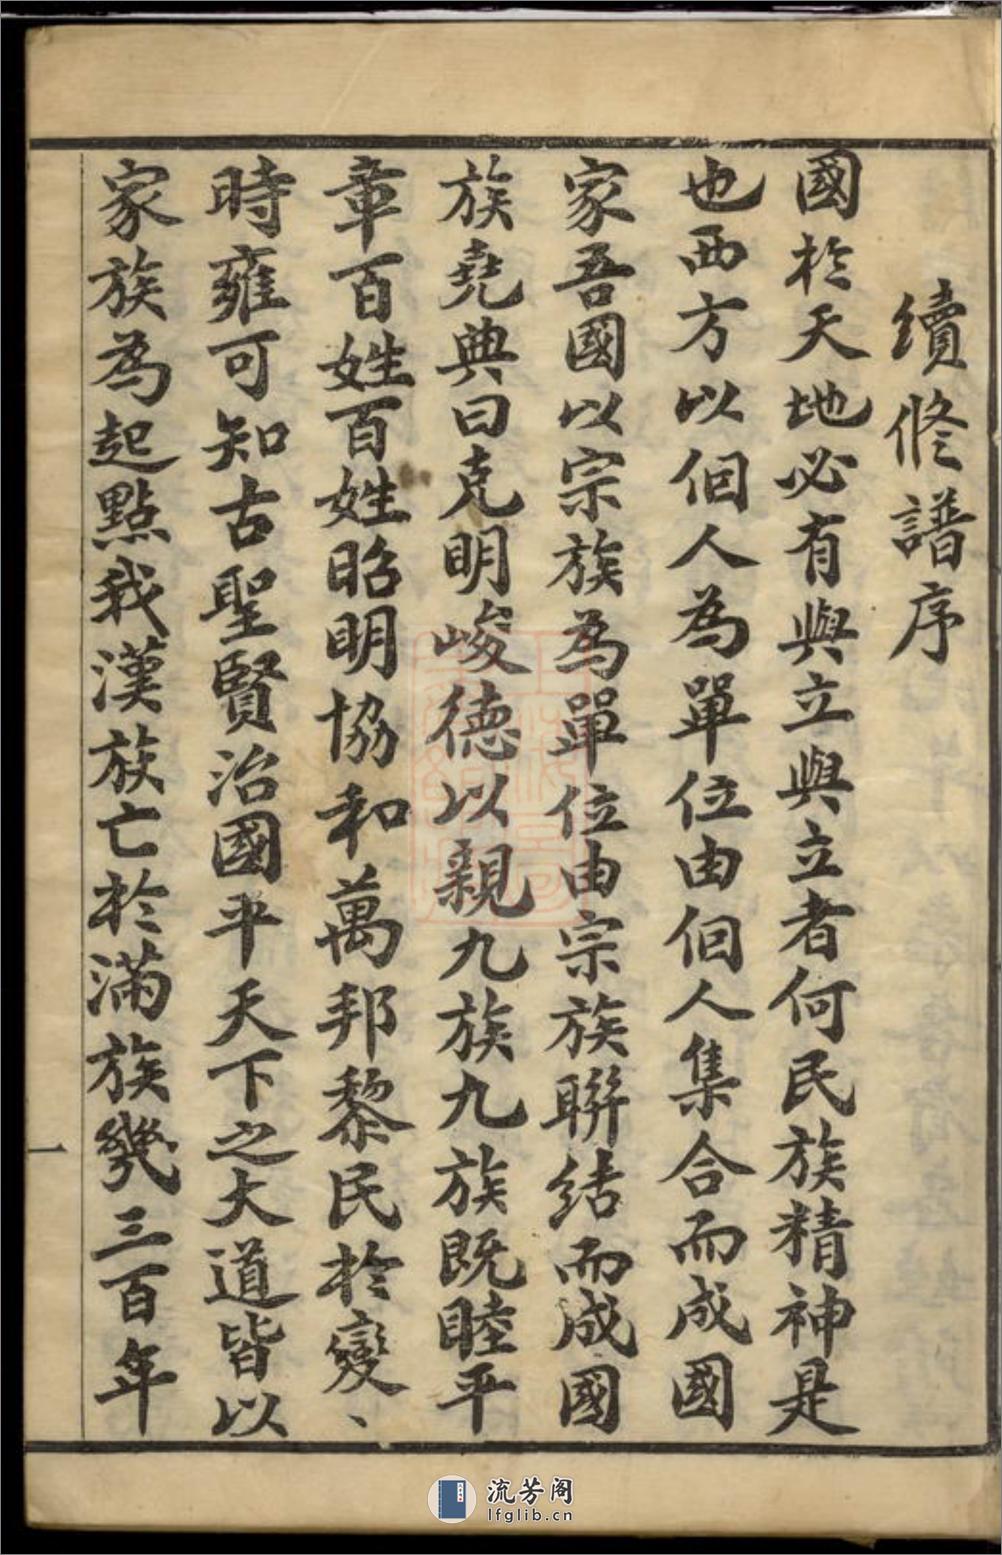 續修譜序
國於天地必有與立與立者何民族精神是
也西方以個人為單位由個人集合而成國
家吾國以宗族為單位由宗族聯結而成國
族堯典曰克明峻德以親九族九族既睦平
章百姓百姓昭明協和萬邦黎民於變、
時雍可知古聖賢治國平天下之大道皆以
家族為起點我漢族亡於滿族幾三百年
一
流芳阁
lfglib.cn